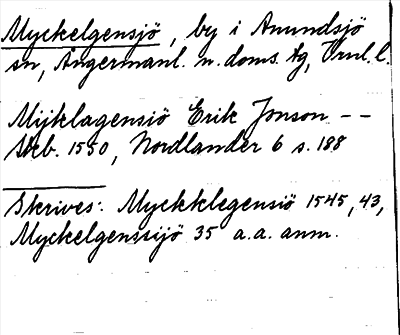 Myckelgensjö, by i Anundsjö
sn, Ångermanl. n. doms. tg, Vrnl. l.
Mijklagensiö Erik Jonson --
Skb. 1550, Nordlander 6 s. 188
Skrives: Myckklegensiö 1545, 43,
Myckelgenssijö 35 a.a. anm.